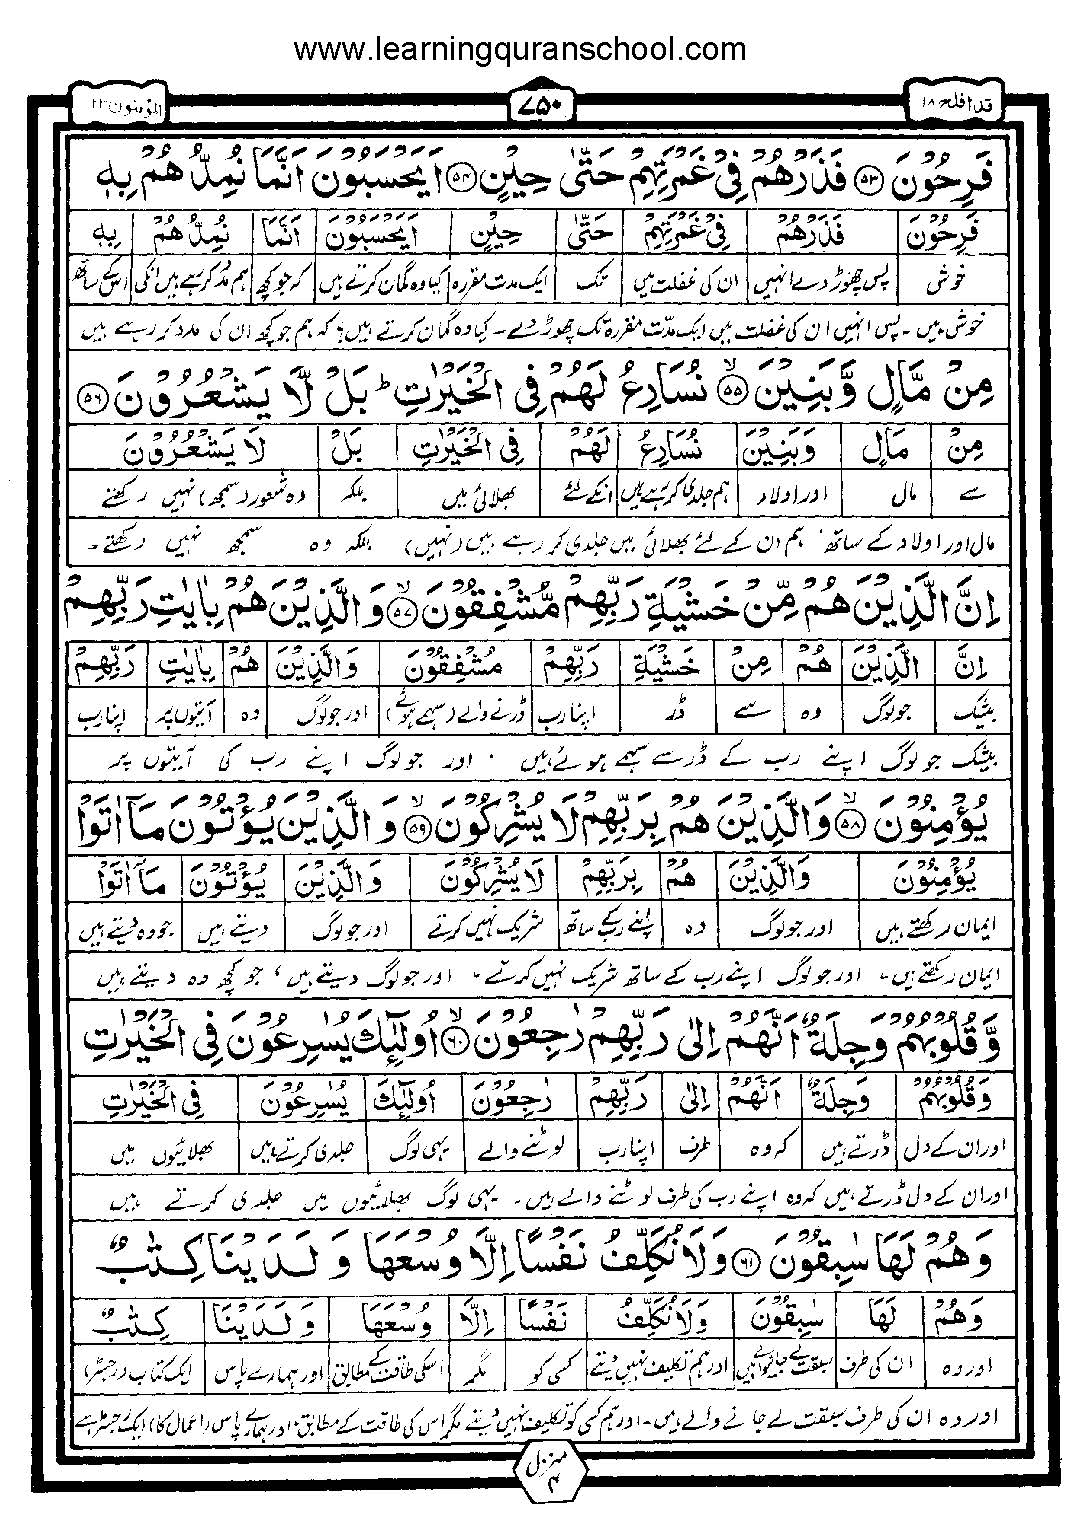 www.learningquranschool.com
قد افلح ۱۸
۷۵۰
المؤمنون ۲۳
فَرِحُوْنَ ۵۳ فَذَرْهُمْ فِیْ غَمْرَتِهِمْ حَتّٰی حِیْنٍ ۵۴ اَیَحْسَبُوْنَ اَنَّمَا نُمِدُّهُمْ بِهٖ
فَرِحُوْنَ فَذَرْهُمْ فِیْ غَمْرَتِهِمْ حَتّٰی حِیْنٍ اَیَحْسَبُوْنَ اَنَّمَا نُمِدُّهُمْ بِهٖ
خوش پس چھوڑ دے انہیں ان کی غفلت میں تک ایک مدت مقررہ کیا وہ گمان کرتے ہیں کہ جو کچھ ہم مدد کر رہے ہیں انکی اس کے ساتھ
خوش ہیں۔ پس انہیں ان کی غفلت میں ایک مدّت مقررہ تک چھوڑ دے۔ کیا وہ گمان کرتے ہیں؛ کہ ہم جو کچھ ان کی مدد کر رہے ہیں
مِنْ مَّالٍ وَّبَنِیْنَ ۙ ۵۵ نُسَارِعُ لَهُمْ فِی الْخَیْرٰتِ ؕ بَلْ لَّا یَشْعُرُوْنَ ۵۶
مِنْ مَالٍ وَبَنِیْنَ نُسَارِعُ لَهُمْ فِی الْخَیْرٰتِ بَلْ لَا یَشْعُرُوْنَ
سے مال اور اولاد ہم جلدی کر رہے ہیں انکے لئے بھلائی میں بلکہ وہ شعور (سمجھ) نہیں رکھتے
مال اور اولاد کے ساتھ، ہم ان کے لئے بھلائی میں جلدی کر رہے ہیں (نہیں) بلکہ وہ سمجھ نہیں رکھتے۔
اِنَّ الَّذِیْنَ هُمْ مِّنْ خَشْیَةِ رَبِّهِمْ مُّشْفِقُوْنَ ۙ ۵۷ وَالَّذِیْنَ هُمْ بِاٰیٰتِ رَبِّهِمْ
اِنَّ الَّذِیْنَ هُمْ مِنْ خَشْیَةِ رَبِّهِمْ مُشْفِقُوْنَ وَالَّذِیْنَ هُمْ بِاٰیٰتِ رَبِّهِمْ
بیشک جو لوگ وہ سے ڈر اپنا رب ڈرنے والے (سہمے ہوئے) اور جو لوگ وہ آیتوں پر اپنا رب
بیشک جو لوگ اپنے رب کے ڈر سے سہمے ہوئے ہیں ۰ اور جو لوگ اپنے رب کی آیتوں پر
یُؤْمِنُوْنَ ۙ ۵۸ وَالَّذِیْنَ هُمْ بِرَبِّهِمْ لَا یُشْرِکُوْنَ ۙ ۵۹ وَالَّذِیْنَ یُؤْتُوْنَ مَاۤ اٰتَوْا
یُؤْمِنُوْنَ وَالَّذِیْنَ هُمْ بِرَبِّهِمْ لَا یُشْرِکُوْنَ وَالَّذِیْنَ یُؤْتُوْنَ مَاۤ اٰتَوْا
ایمان رکھتے ہیں اور جو لوگ وہ اپنے رب کے ساتھ شریک نہیں کرتے اور جو لوگ دیتے ہیں جو وہ دیتے ہیں
ایمان رکھتے ہیں۔ اور جو لوگ اپنے رب کے ساتھ شریک نہیں کرتے۔ اور جو لوگ دیتے ہیں، جو کچھ وہ دیتے ہیں
وَّقُلُوْبُهُمْ وَجِلَةٌ اَنَّهُمْ اِلٰی رَبِّهِمْ رٰجِعُوْنَ ۙ ۶۰ اُولٰٓئِكَ یُسٰرِعُوْنَ فِی الْخَیْرٰتِ
وَقُلُوْبُهُمْ وَجِلَةٌ اَنَّهُمْ اِلٰی رَبِّهِمْ رٰجِعُوْنَ اُولٰٓئِكَ یُسٰرِعُوْنَ فِی الْخَیْرٰتِ
اور ان کے دل ڈرتے ہیں کہ وہ طرف اپنا رب لوٹنے والے یہی لوگ جلدی کرتے ہیں بھلائیوں میں
اور ان کے دل ڈرتے ہیں کہ وہ اپنے رب کی طرف لوٹنے والے ہیں۔ یہی لوگ بھلائیوں میں جلدی کرتے ہیں
وَهُمْ لَهَا سٰبِقُوْنَ ۶۱ وَلَا نُكَلِّفُ نَفْسًا اِلَّا وُسْعَهَا وَلَدَیْنَا كِتٰبٌ
وَهُمْ لَهَا سٰبِقُوْنَ وَلَا نُكَلِّفُ نَفْسًا اِلَّا وُسْعَهَا وَلَدَیْنَا كِتٰبٌ
اور وہ ان کی طرف سبقت لے جانیوالے ہیں اور ہم تکلیف نہیں دیتے کسی کو مگر اسکی طاقت کے مطابق اور ہمارے پاس ایک کتاب (رجسٹر)
اور وہ ان کی طرف سبقت لے جانے والے ہیں۔ اور ہم کسی کو تکلیف نہیں دیتے مگر اس کی طاقت کے مطابق؛ اور ہمارے پاس (اعمال کا) ایک رجسٹر ہے
منزل ۴